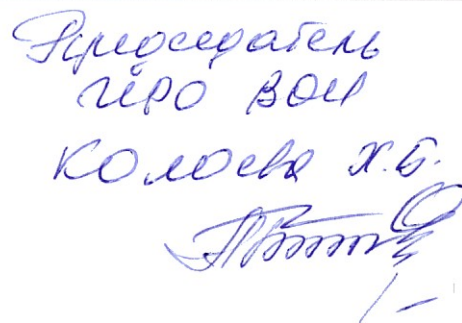 Председатель
ИРО ВОИ
Колоева Х.Б.